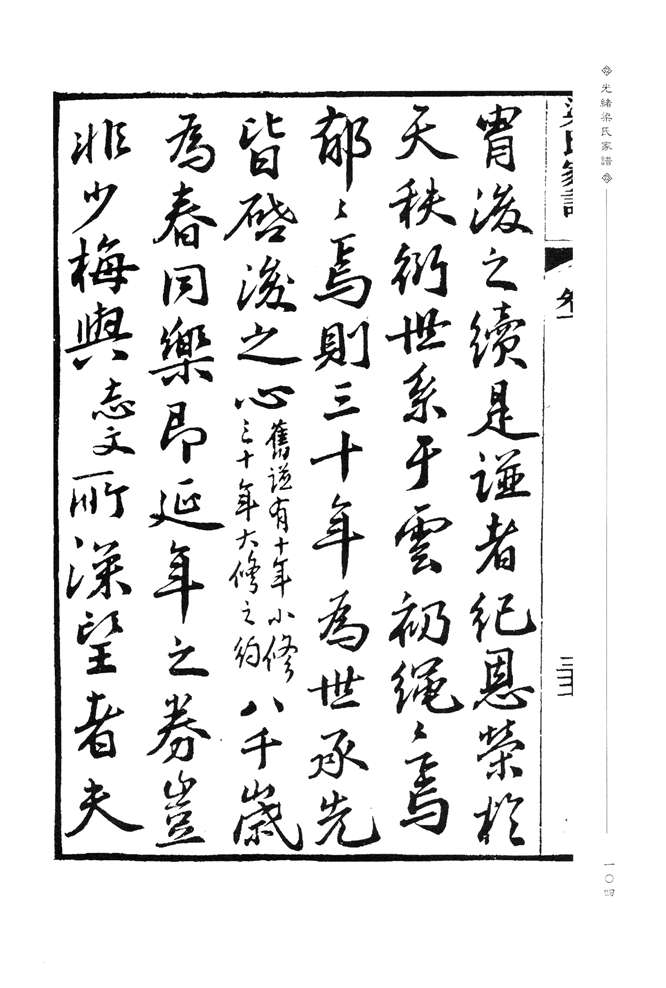 光緒梁氏家譜
一〇四
梁氏家譜
冑後之續是譜者紀恩榮於
天秩衍世系于雲礽繩〻焉
郁〻焉則三十年為世承先
皆啓後之心舊譜有十年小修三十年大修之約八千歲
為春同樂即延年之券豈
非少梅與志文所深望者夫